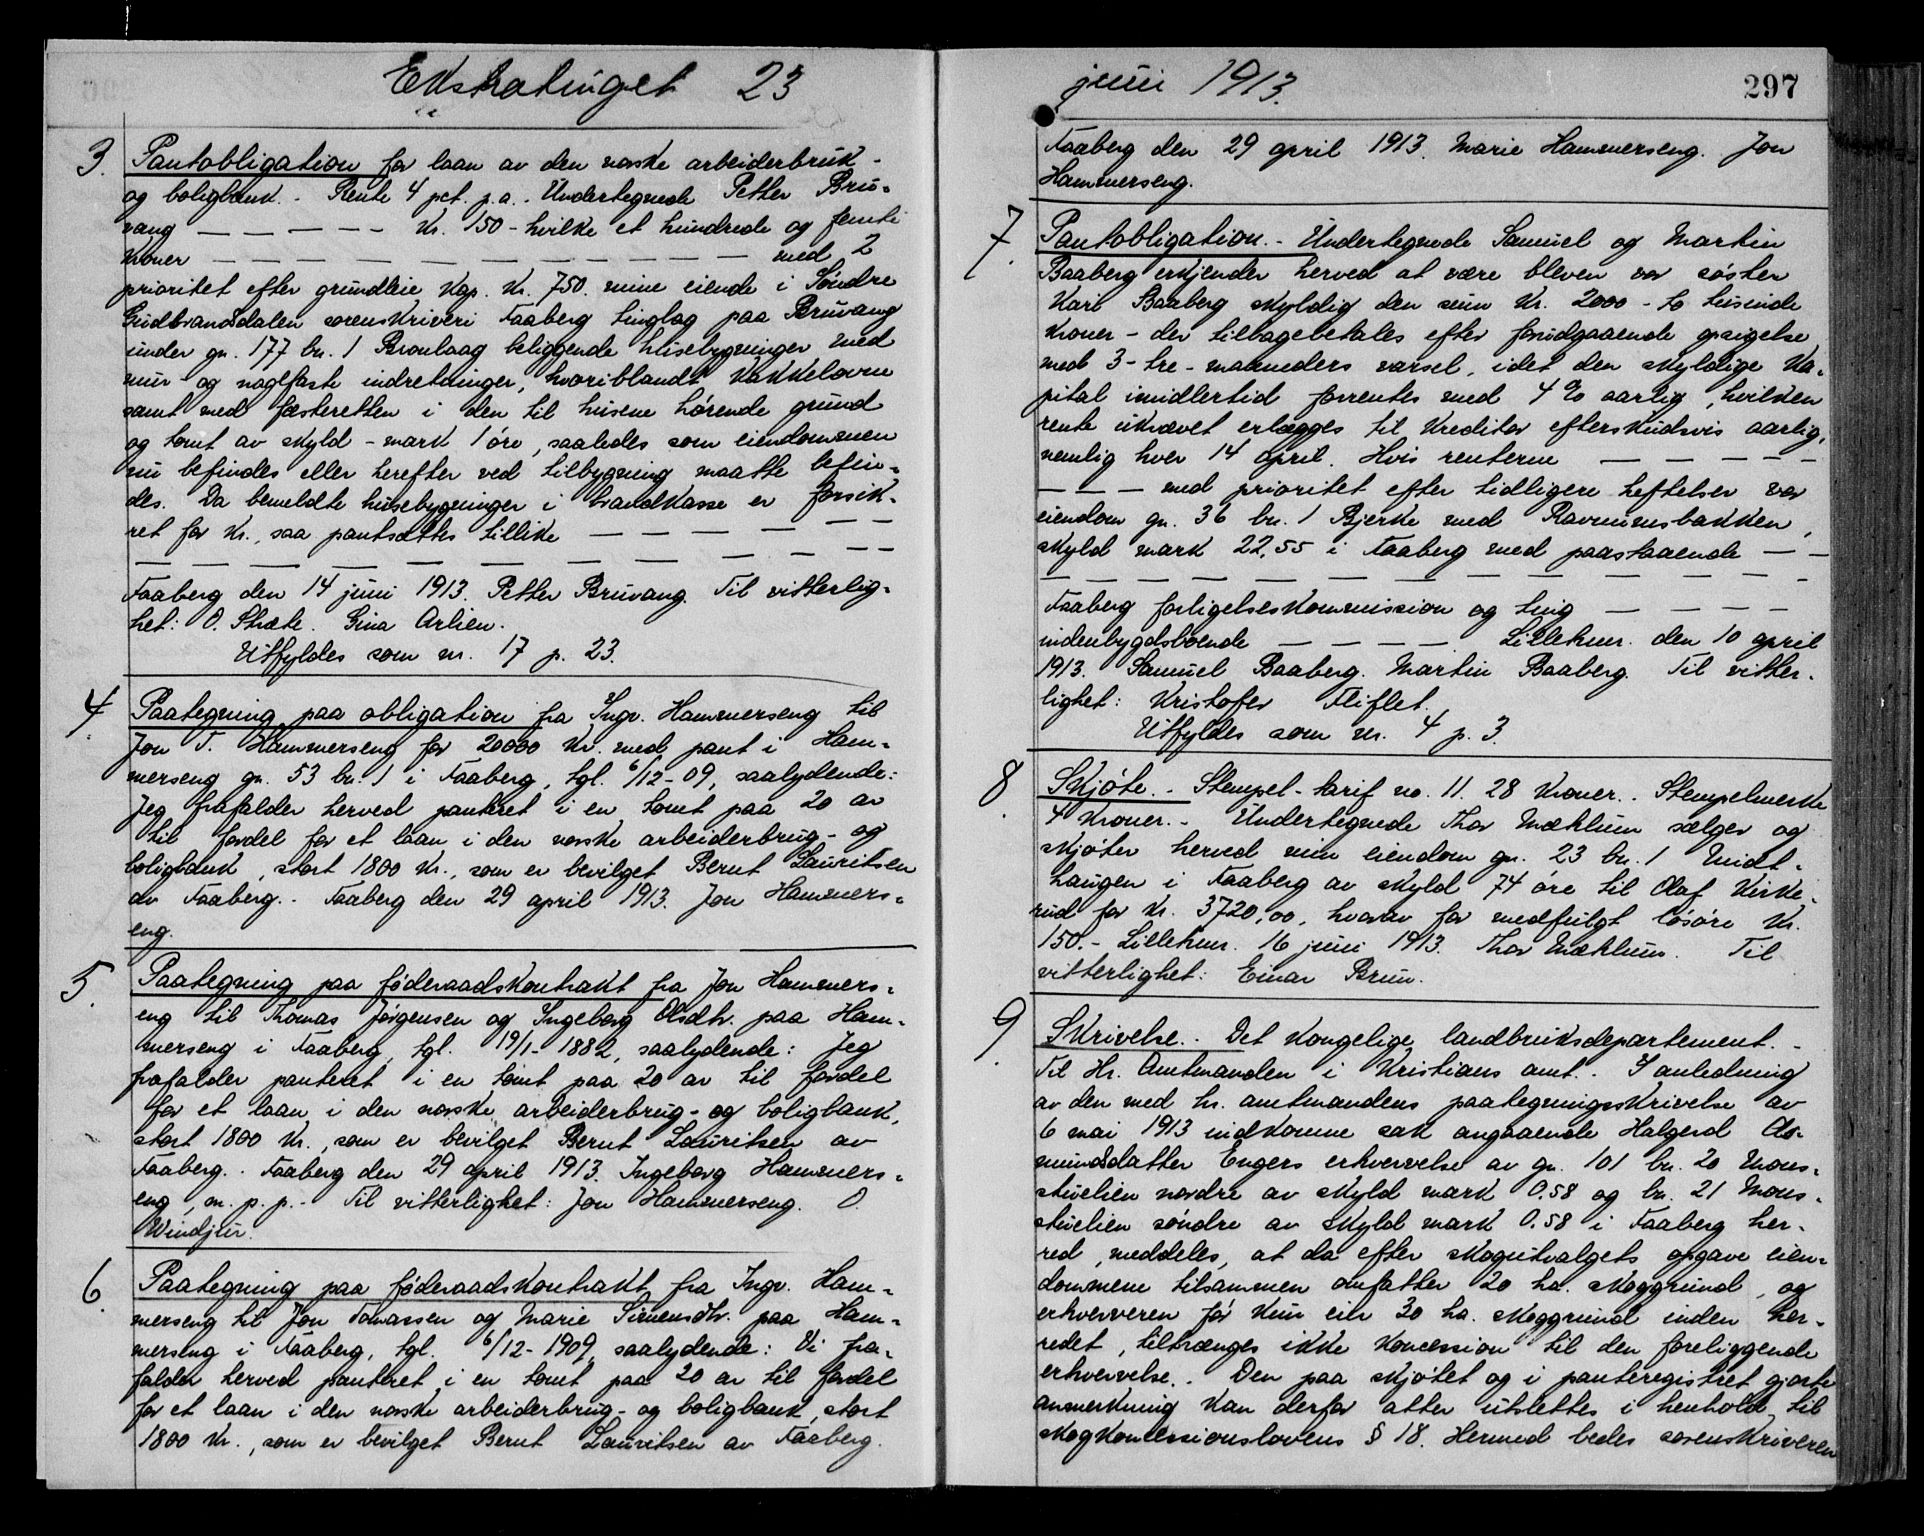 Ekstratinget 23
3. Pantobligation for laan av den norske arbeiderbruk-
og boligbank. - Rente 4 pct. p.a. - Undertegnede Petter Bru-
vang — — — — — Kr. 150 - hvilke et hundrede og femti
kroner — — — — — — — — — — med 2
prioritet efter grundleie Kap. Kr. 750. mine eiende i Søndre
Gudbrandsdalen sorenskriveri Faaberg tinglag paa Bruvang
under gn. 177 bn. 1 beliggende husebygninger med
mur- og naglfaste indretninger, hvoriblandt kakkelovne
samt med fæsteretten i den til husene hørende grund
og tomt av skyld - mark 1 øre, saaledes som eiendommen
nu befindes eller herefter ved tilbygning maatte befin-
des. Da bemeldte husebygninger i brandkasse er forsik-
ret for Kr., saa pantsættes tillike — — — — —
— — — — — — — — — — —
Faaberg den 14 juni 1913. Petter Bruvang. Til vitterlig-
het: O. Stræte. Gina Arlien.
Utfyldes som nr. 17 p. 23.
4. Paategning paa obligation fra Ingv. Hammerseng til
Jon T. Hammerseng for 20000 Kr. med pant i Ham-
merseng gn. 53 bn. 1 i Faaberg, tgl. 6/12-09, saalydende:
Jeg frafalder herved panteret i en tomt paa 20 ar
til fordel for et laan i den norske arbeiderbrug- og
boligbank, stort 1800 Kr., som er bevilget Bernt Lauritsen
av Faaberg. - Faaberg den 29 april 1913. Jon Hammers-
eng.
5. Paategning paa føderaadskontrakt fra Jon Hammers-
eng til Thomas Jørgensen og Ingeborg Olsdtr. paa Ham-
merseng i Faaberg, tgl. 19/1-1882, saalydende: Jeg
frafalder panteret i en tomt paa 20 ar til fordel
for et laan i den norske arbeiderbrug- og boligbank,
stort 1800 Kr., som er bevilget Bernt Lauritsen av
Faaberg. - Faaberg den 29 april 1913. Ingeborg Hammers-
eng, m. p. p. - Til vitterlighet: Jon Hammerseng. O.
Windjur.
6. Paategning paa føderaadskontrakt fra Ingv. Ham-
merseng til Jon Tomassen og Marie Simensdtr. paa Ham-
merseng i Faaberg, tgl. 6/12-1909, saalydende: Vi fra-
falder herved panteret i en tomt paa 20 ar til fordel
for et laan i den norske arbeiderbrug- og boligbank, stort
1800 Kr., som er bevilget Bernt Lauritsen av Faaberg.
juni 1913. 297
Faaberg den 29 april 1913. Marie Hammerseng. Jon
Hammerseng.
7. Pantobligation. - Undertegnede Samuel og Martin
Baaberg erkjender herved at være bleven vor søster
Kari Baaberg skyldig den sum Kr. 2000 - to tusinde
kroner - der tilbagebetales efter forudgaaende opsigelse
med 3 - tre - maaneders varsel, idet den skyldige ka-
pital imidlertid forrentes med 4 % aarlig, hvilken
rente ukrævet erlægges til kreditor efterskudsvis aarlig,
nemlig hver 14 april. Hvis renterne — — — — —
— — — med prioritet efter tidligere heftelser vor
eiendom gn. 36 bn. 1 Bjerke med Ravnumsbakken,
skyld mark 22,55 i Faaberg med paastaaende — —
— — — — — — — — — — — — —
Faaberg forligelseskommission og ting — — — —
uidenbygdsboende — — — — Lillehmr. den 10 april
1913. Samuel Baaberg. Martin Baaberg. Til vitter-
lighet: Kristofer Fliflet.
Utfyldes som nr. 4 p. 3.
8. Skjøte. - Stempel-tarif no. 11. 28 kroner. - Stempelmerke
4 kroner. - Undertegnede Thor Mæhlum sælger og
skjøter herved min eiendom gn. 23 bn. 1 Midt-
haugen i Faaberg av skyld 74 øre til Olaf Kirke-
rud for Kr. 3720,00, hvorav for medfulgt løsøre Kr.
150. - Lillehmr. 16 juni 1913. Thor Mæhlum. Til
vitterlighet: Einar Brun.
9. Skrivelse. - Det kongelige landbruksdepartement. -
Til Hr. Amtmanden i Kristians amt. - I anledning
av den med hr. amtmandens paategningsskrivelse av
6 mai 1913 indkomne sak angaaende Halgerd As-
mundsdatter Engers erhvervelse av gn. 101 bn. 20 Mons-
stuelien nordre av skyld mark 0.58 og bn. 21 Mons-
stuelien søndre av skyld mark 0.58 i Faaberg her-
red, meddeles, at da efter skogutvalgets opgave eien-
dommene tilsammen omfatter 20 ha. skoggrund, og
erhververen før kun eier 30 ha. skoggrund inden her-
redet, tiltrænges ikke koncession til den foreliggende
erhvervelse. - Den paa skjøtet og i panteregistret gjorte
anmerkning kan derfor atter utslettes i henhold til
skogkoncessionslovens § 18. Hermed bedes sorenskriveren